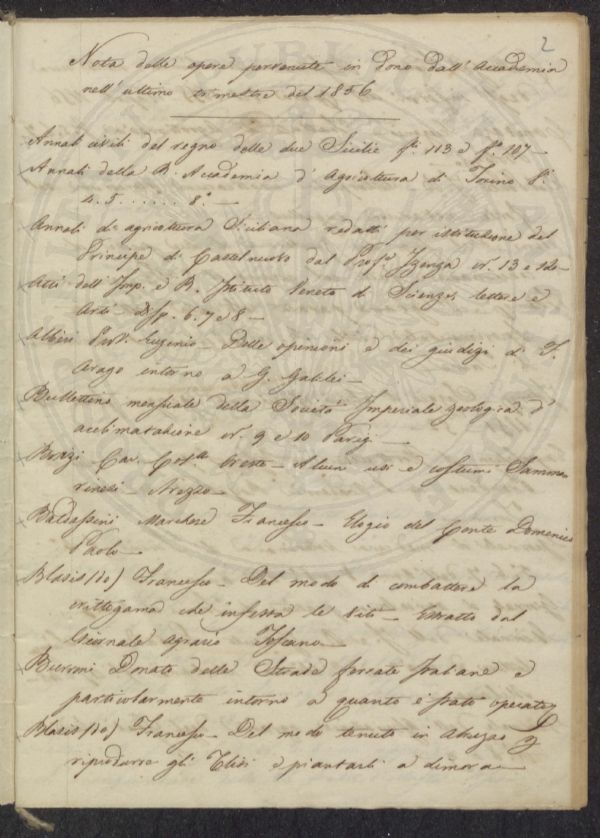 2
Nota delle opere pervenute in dono dall'Accademia
nell'ultimo trimestre del 1856
Annali civili del regno delle due Sicilie f.° 113 e f.° 107
Annali della R. Accademia d'Agricoltura di Torino
4. 5 ...... 8.°
Annali di agricoltura Siciliana redatti per istituzione del
Principe di Castelnuovo dal Prof.e Inzenga n. 13 e
Atti dell'Imp. e R. Istituto Veneto di Scienze, lettere e
Arti Disp. 6. 7 e 8
Albèri Eugenio Delle opinioni e dei giudizi di F.
Arago intorno a G. Galilei
Bullettino mensuale della Società Imperiale zoologica d'
acclimatazione n. 9 e 10 Parigi
Brizi Cav. Oreste Alcuni usi e costumi Samma
rinesi Arezzo
Baldassini Marchese Francesco Elogio del Conte Domenico
Paoli
Blasis (De) Francesco Del modo di combattere la
crittogama che infesta le viti Estratto dal
Giornale agrario Toscano
Donato delle Strade ferrate Italiane e
particolarmente intorno a quanto è stato operato
Blasis (De) Francesco Del modo tenuto in
riprodurre gli Ulivi e piantarli a dimora